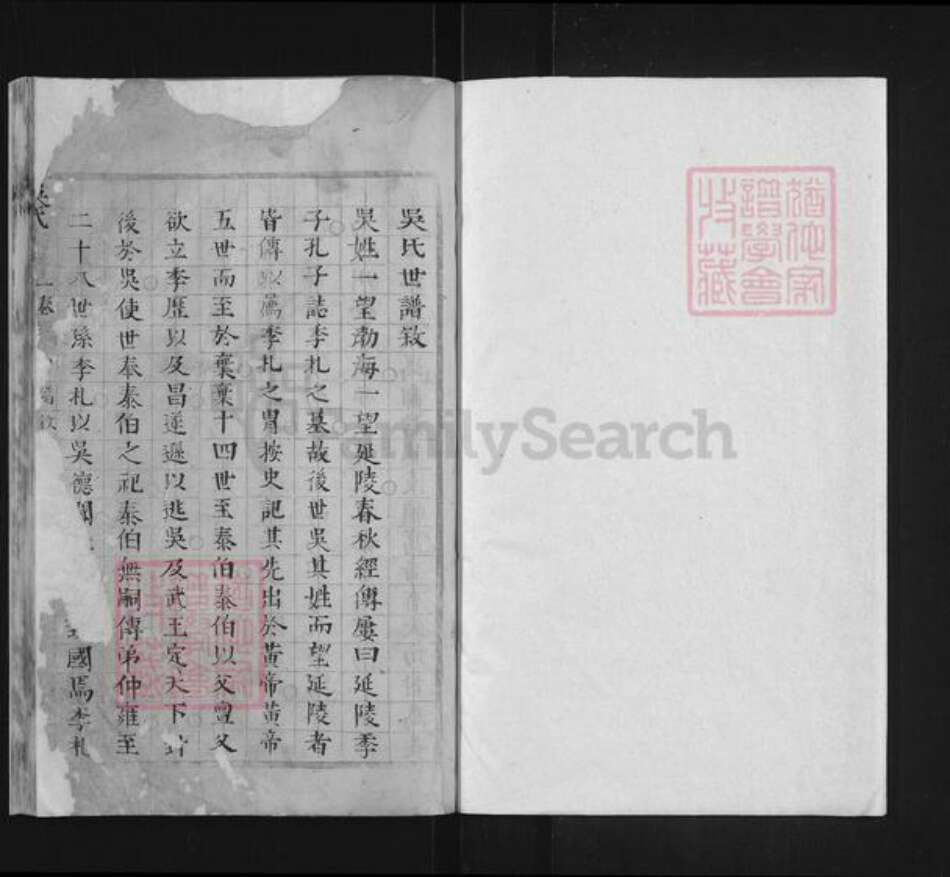 吳氏世譜敘
吳姓一望渤海一望延陵春秋經傳屢曰延陵季
子孔子誌季札之墓故後世吳其姓而望延陵者
皆傳以爲季札之冑按史記其先出於黃帝黃帝
五世而至於棄棄十四世至泰伯泰伯以父亶父
欲立季歷以及昌遂遜以逃吳及武王定天下封
後於吳使世奉泰伯之祀泰伯無嗣傳弟仲雍至
二十八世孫季札以吳德國焉季札
猶他家譜學會收藏
FamilySearch